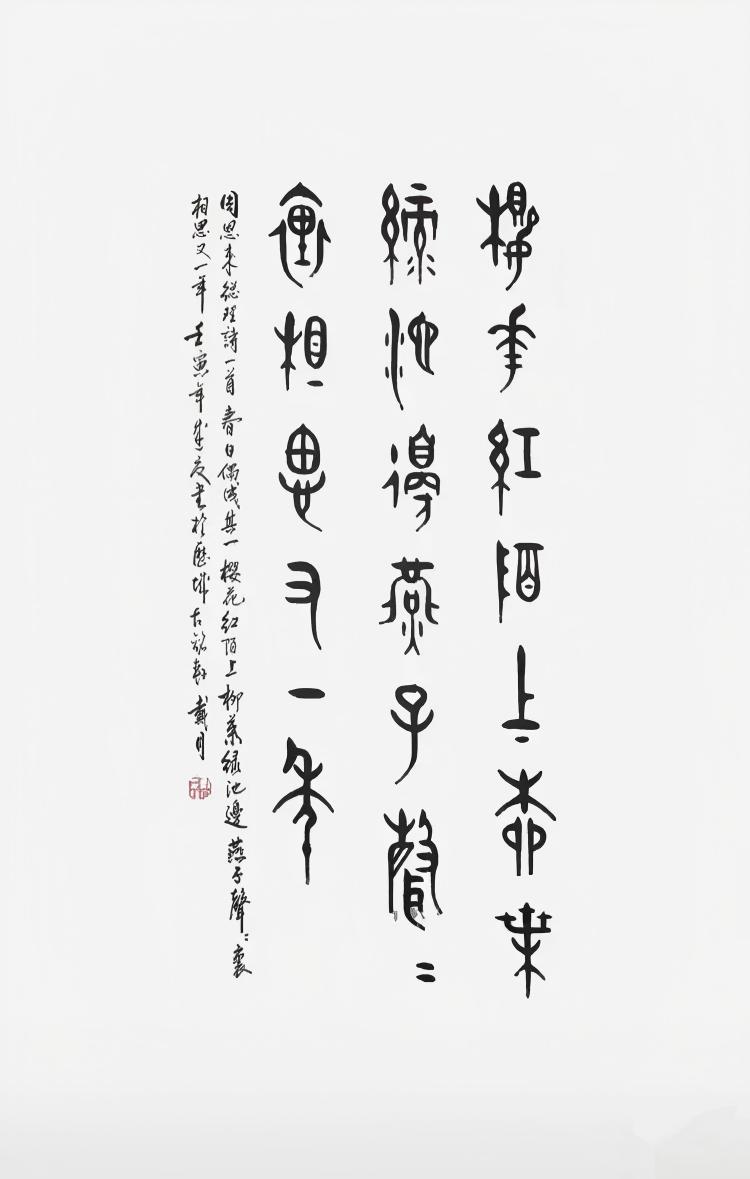 櫻花紅陌上柳葉
綠池邊燕子聲〻
裏相思又一年
周恩来總理詩一首 春日偶成其一 櫻花红陌上柳葉緑池邊燕子聲〻裏
相思又一年 壬寅年 書於歷城古 戴月